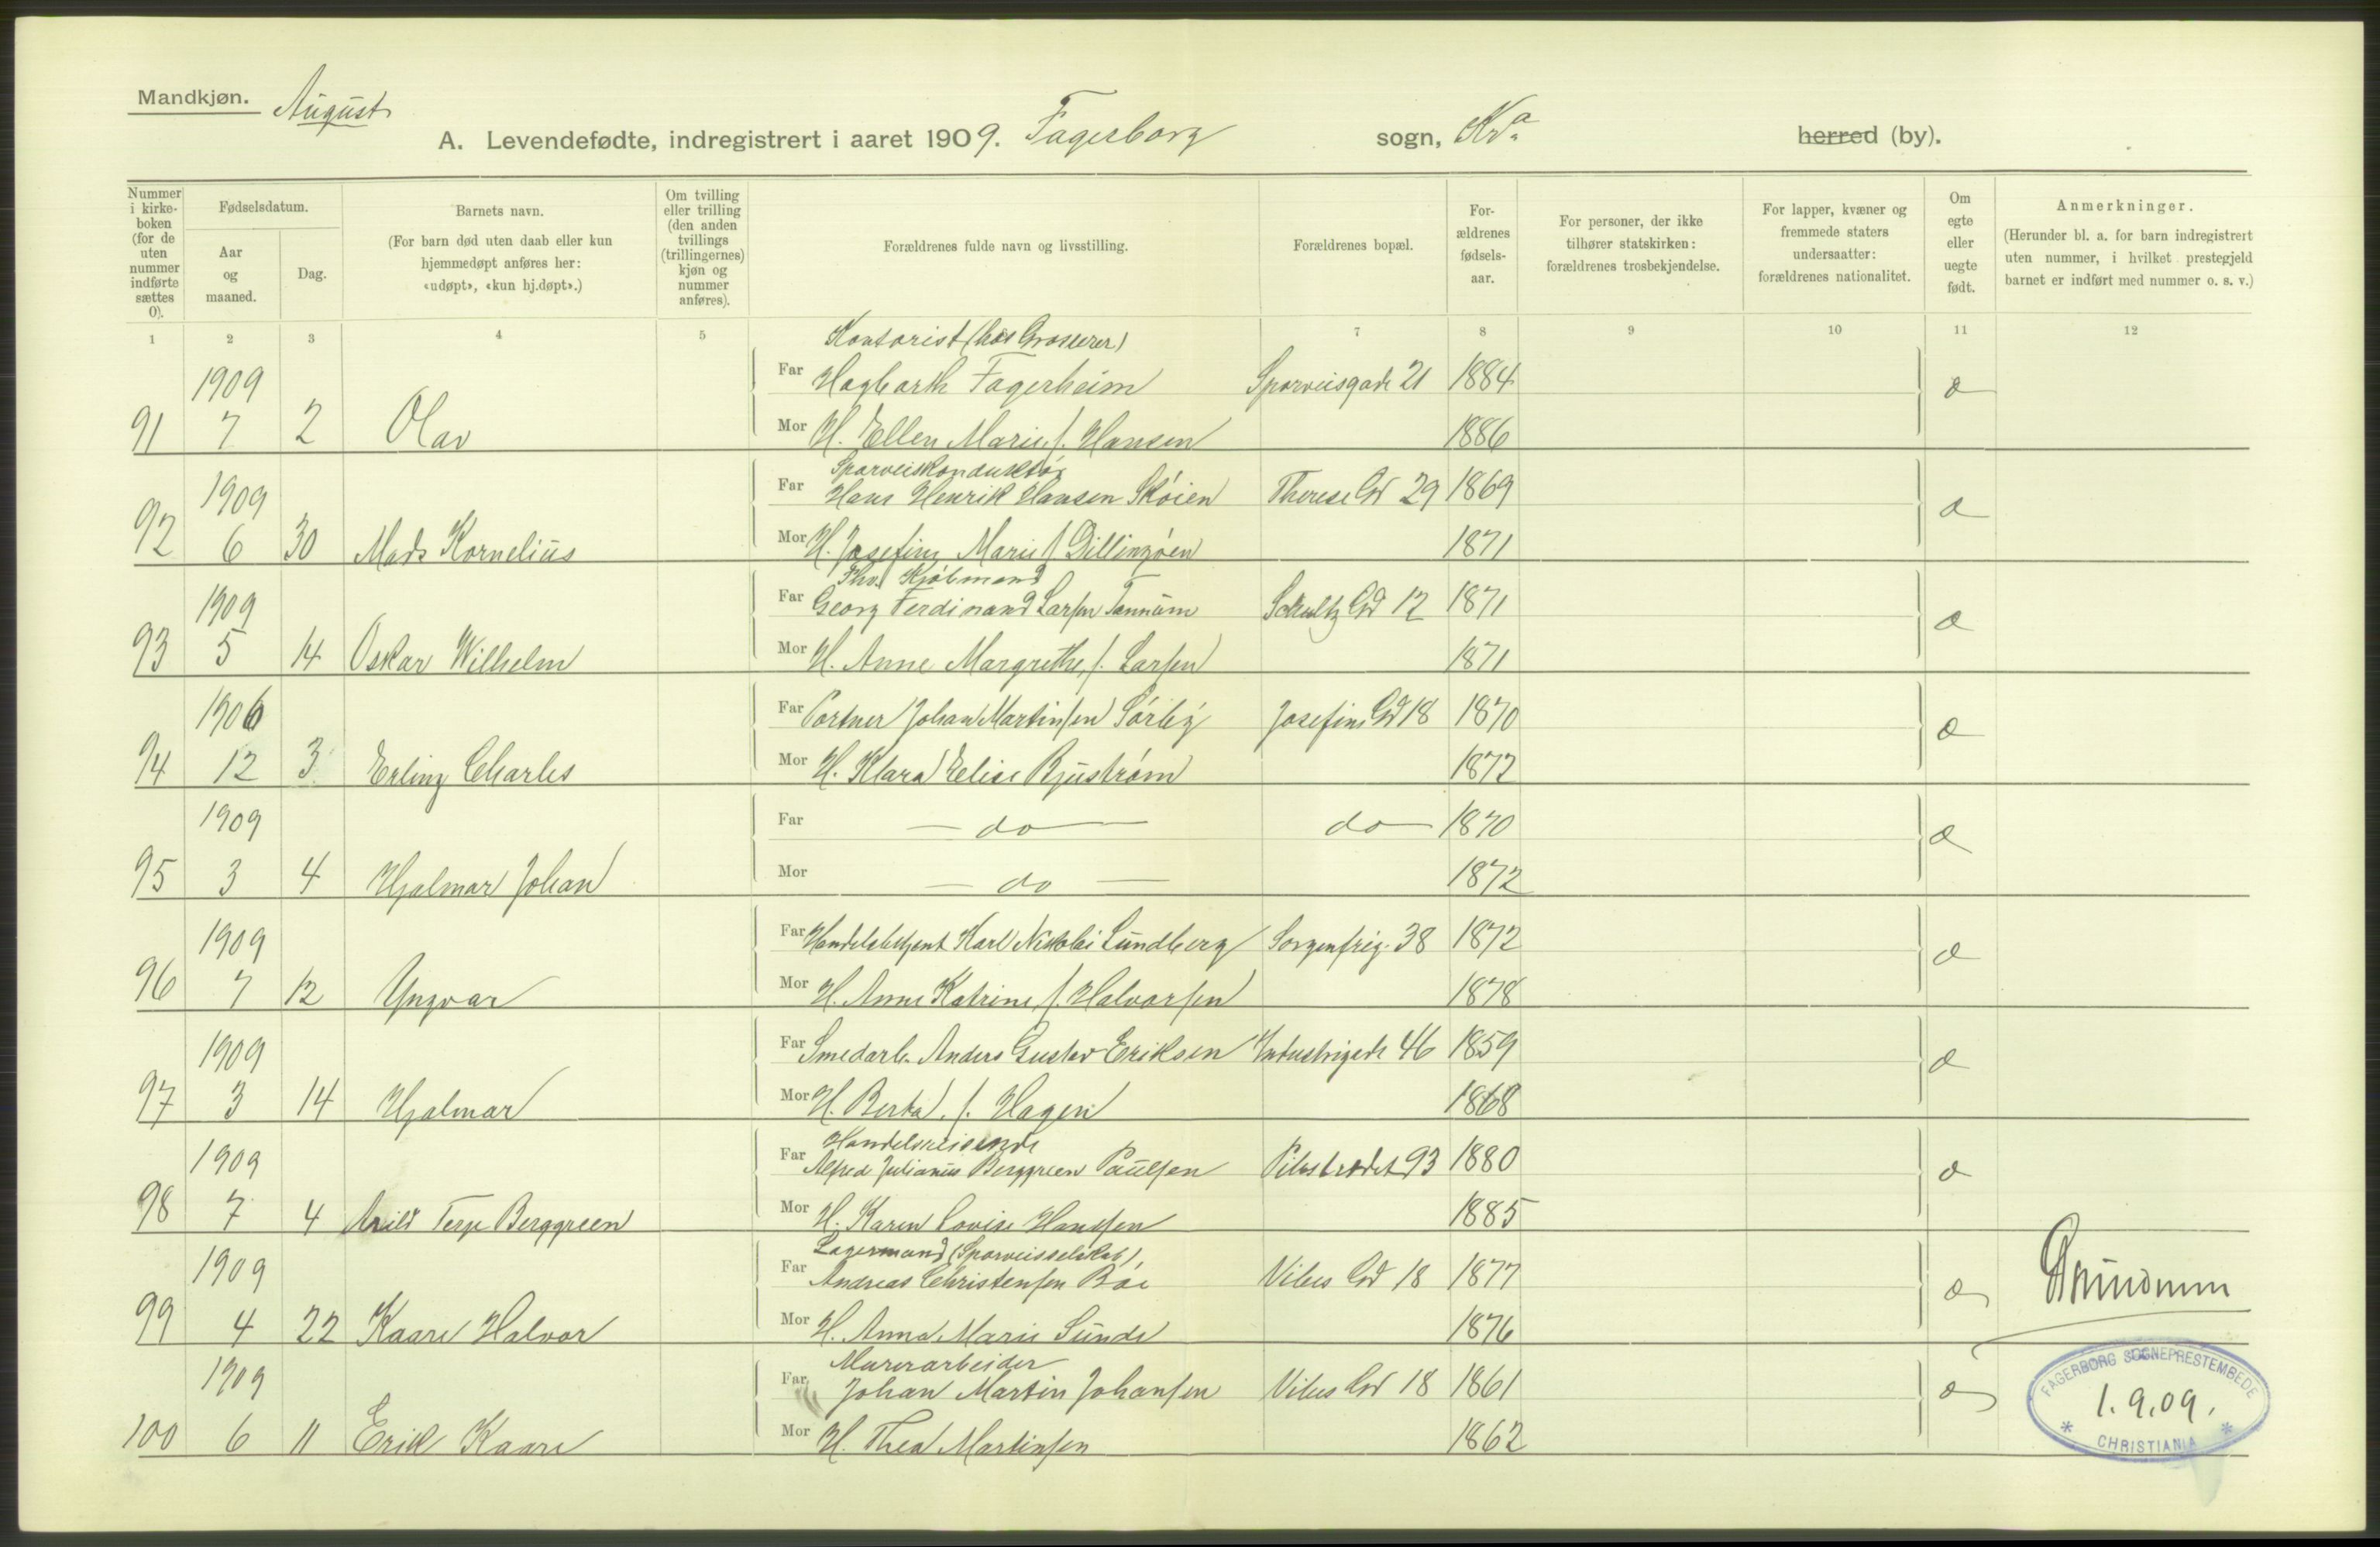 Mandkjøn. August
A. Levendefødte, indregistrert i aaret 1909. Fagerborg sogn, Kra. herred (by).
Nummer i kirkeboken (for de uten nummer indførte sættes 0).
Fødselsdatum.
Aar og maaned.
Dag.
Barnets navn.
(For barn død uten daab eller kun hjemmedøpt anføres her: «udøpt», «kun hj.døpt».)
Om tvilling eller trilling (den anden tvillings (trillingernes) kjøn og nummer anføres).
Forældrenes fulde navn og livsstilling.
Forældrenes bopæl.
Forældrenes fødselsaar.
For personer, der ikke tilhører statskirken: forældrenes trosbekjendelse.
For lapper, kvæner og fremmede staters undersaatter: forældrenes nationalitet.
Om egte eller uegte født.
Anmerkninger.
(Herunder bl. a. for barn indregistrert uten nummer, i hvilket prestegjeld barnet er indført med nummer o. s. v.)
1 2 3 4 5 7 8 9 10 11 12
Kontorist (hos Grosserer)
1909 Far Hagbarth Fagerheim Sporveisgade 21 1884
91 7 2 Olav Mor H. Ellen Marie f. Hansen 1886
Sporveiskonduktør
1909 Far Hans Henrik Hansen Skøien Therese Gd 29 1869
92 6 30 Mads Kornelius Mor H. Josefine Marie f. Dillingøen 1871
Fhv. Kjøbmand
1909 Far Georg Ferdinand Larsen Tannum Schultz Gd 12 1871
93 5 14 Oskar Wilhelm Mor H. Anne Margrethe f. Larsen 1871
1906 Far Portner Johan Martinsen Sørby Josefines Gd 18 1870
94 12 3 Erling Charles Mor H. Klara Elise Bjustrøm 1872
1909 Far — do — do — 1870
95 3 4 Hjalmar Johan Mor — do — 1872
1909 Far Handelsbetjent Karl Nikolai Lundberg Sorgenfrig. 38 1872
96 7 12 Yngvar Mor H. Anne Katrine f. Halvorsen 1878
1909 Far Smedarb. Anders Gustav Eriksen Industrigade 46 1859
97 3 14 Hjalmar Mor H. Berta f. Hagen 1868
Handelsreisende
1909 Far Alfred Julianus Berggreen Paulsen Pilestrædet 93 1880
98 7 4 Arild Terje Berggreen Mor H. Karen Lovise Hansen 1885
Lagermand (Sporveisselskab)
1909 Far Andreas Christensen Bøe Vibes Gd 18 1877
99 4 22 Kaare Halvor Mor H. Anna Marie Sunde 1876
Murerarbeider
1909 Far Johan Martin Johansen Vibes Gd 18 1861
100 6 11 Erik Kaare Mor H. Thea Martinsen 1862
FAGERBORG SOGNEPRESTEMBEDE
1.9.09.
* CHRISTIANIA *